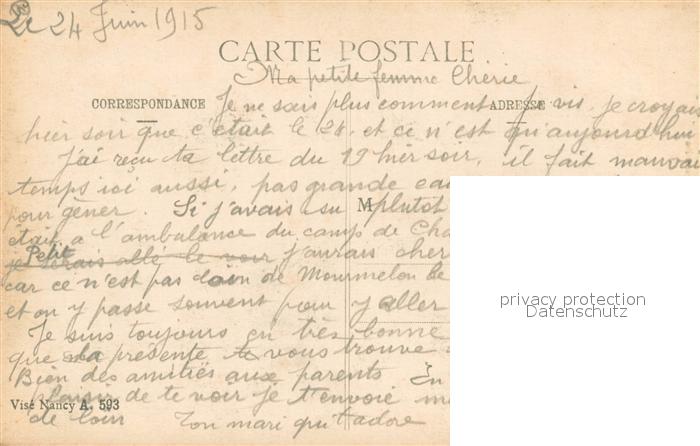 Le 24 Juin 1915
CARTE POSTALE
Ma petite femme Chérie
CORRESPONDANCE
ADRESSE
Je ne sais plus comment je vis, je croyais
hier soir que c'était le 24. et ce n'est qu'aujourd'hui
J'ai reçu ta lettre du 19 hier soir, il fait mauvais
temps ici aussi, pas grande
pour gêner. Si j'avais su plutot
M
était a l'ambulance du camp de
Petit
je serais allé le voir j'aurais
car ce n'est pas loin de Mourmelon le
et on y passe souvent pour y aller
Je suis toujours en très bonne
que la présente te vous trouve
Bien des amitiés aux parents
plaisir de te voir je t'envoie
de loin Ton mari qui t'adore
Visé Nancy A. 593
privacy protection
Datenschutz